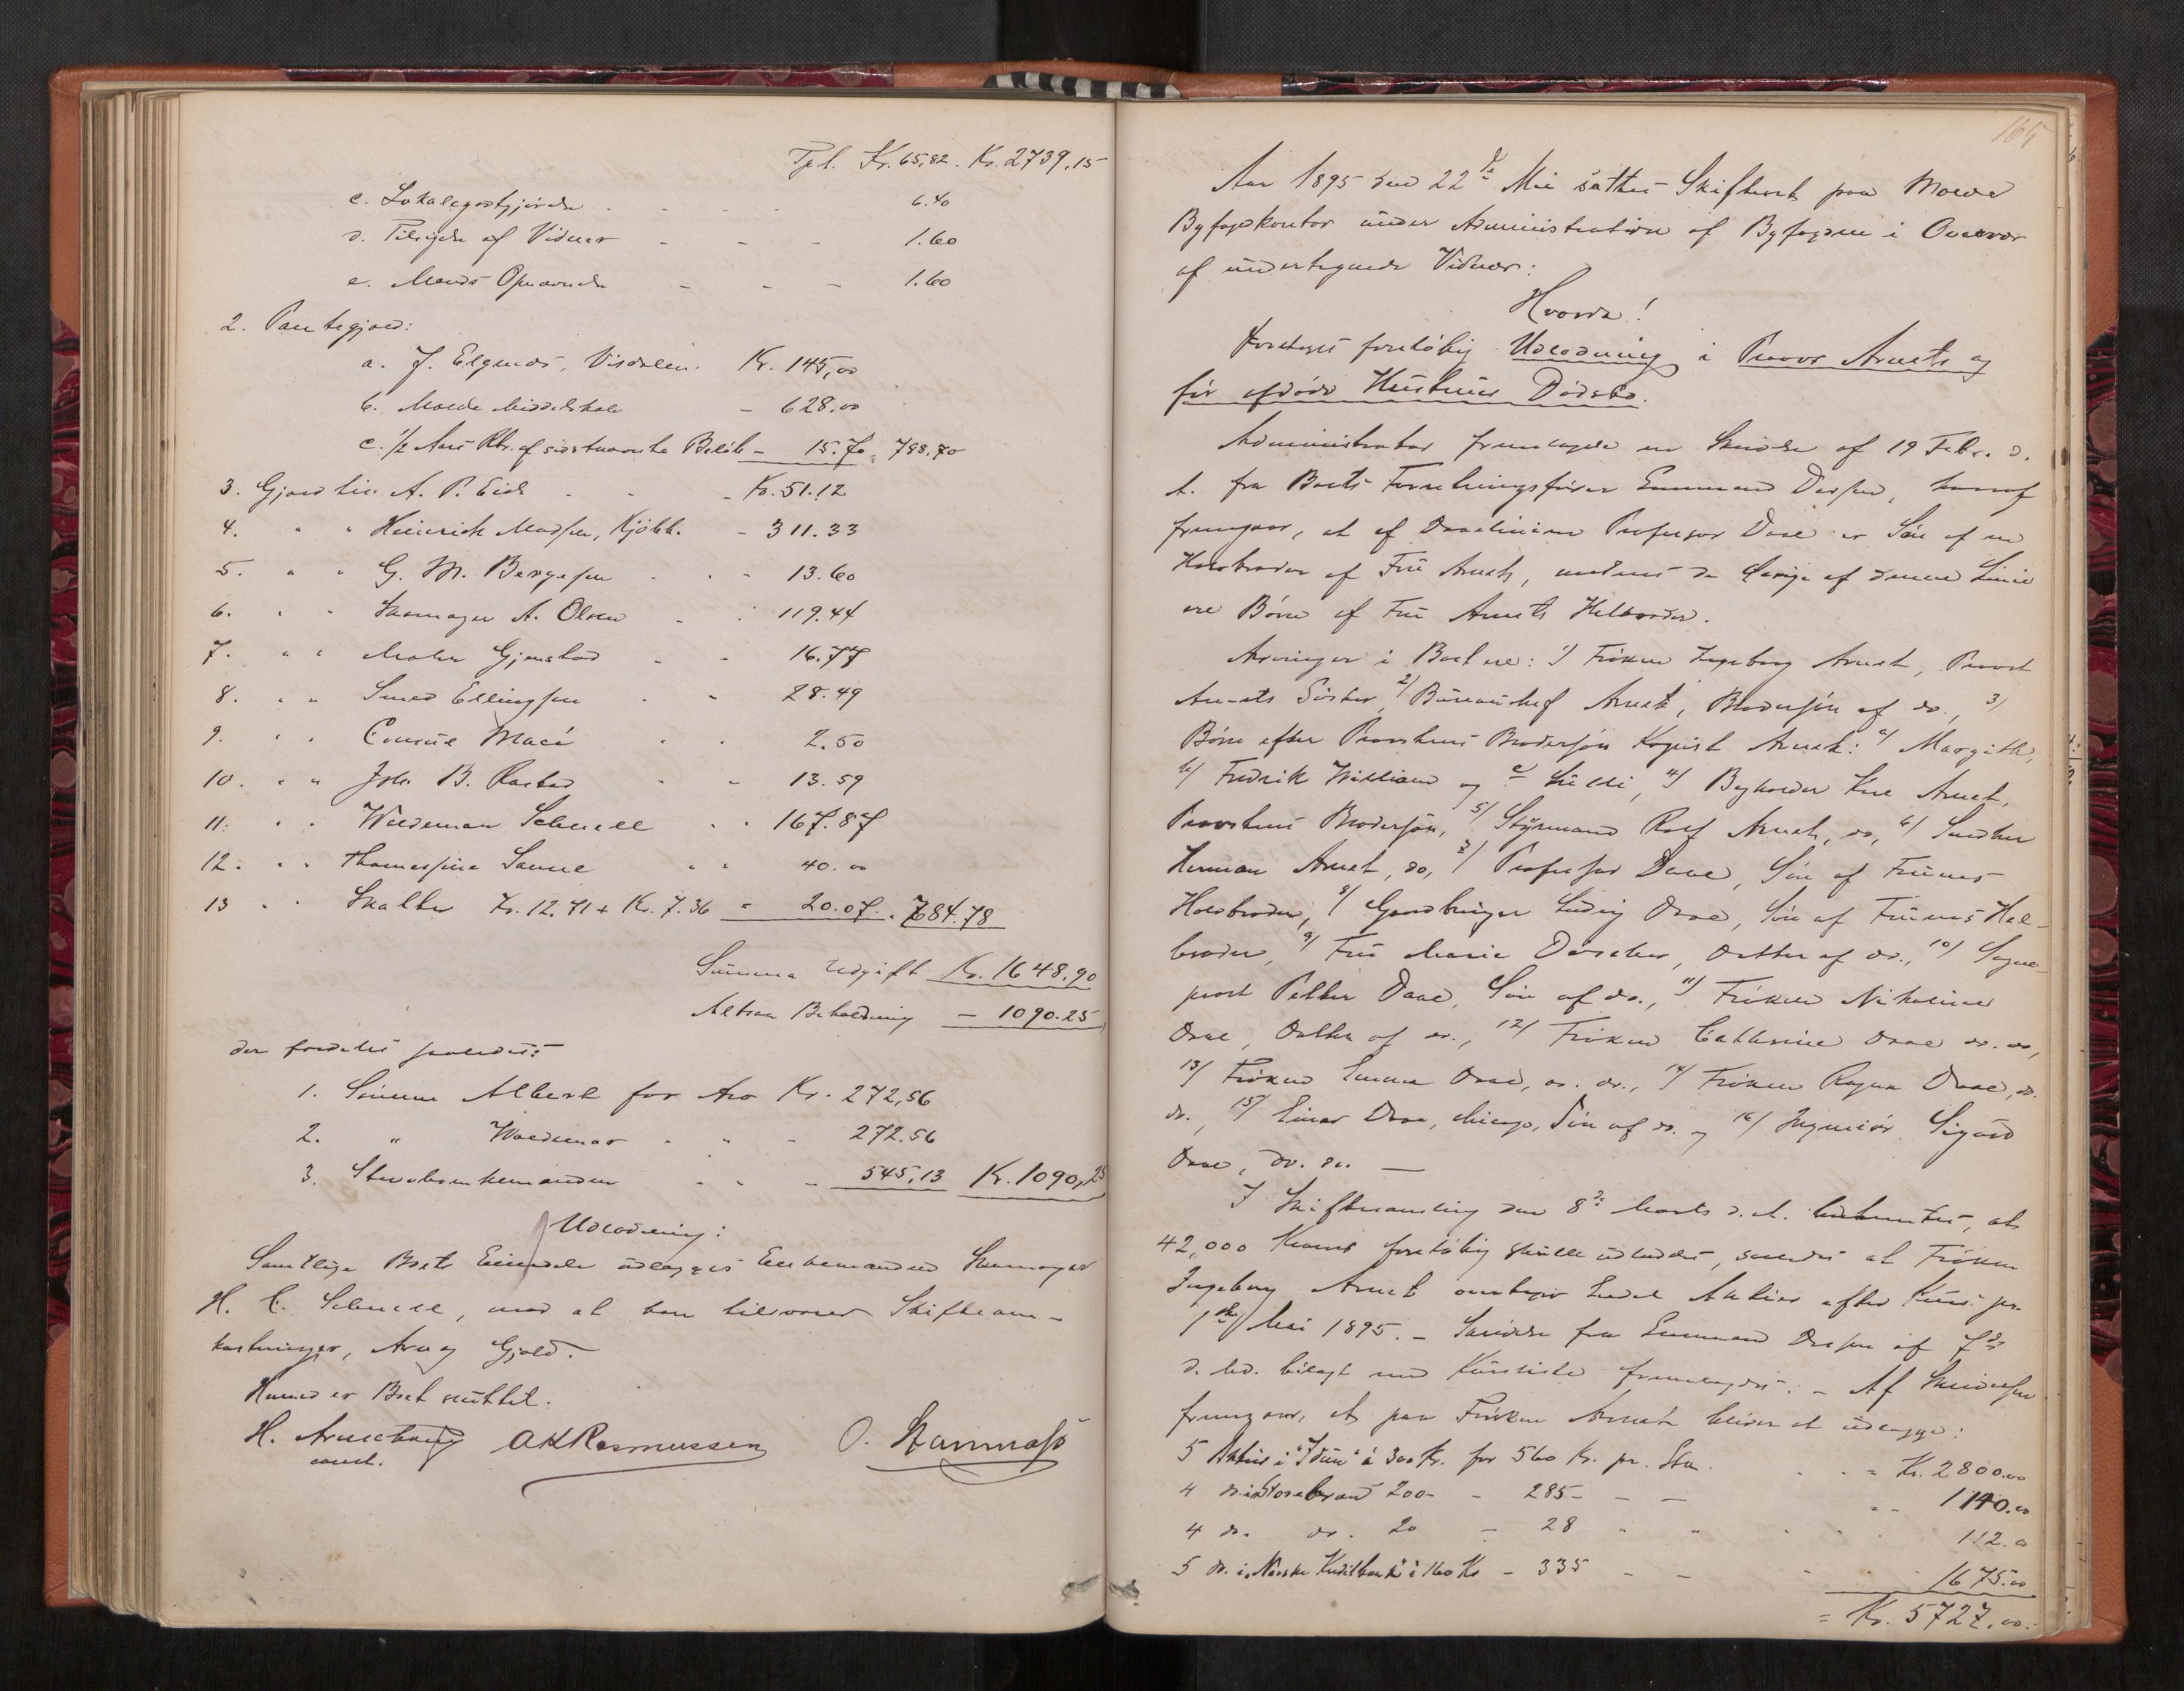 Tpt. Kr. 65,82. Kr. 2739.15
c. Lokalegodtgjørelse - - - 6.40
d. Tilsigelse af Vidner - - - 1.60
e. Mænds Opnævnelse - - - 1.60
2. Pantegjæld:
a. J. Elgenæs, Visdalen. Kr. 145,00
b. Molde Middelskole - 628.00
c. 1/2 Aars Rtr. af sidstnævnte Beløb - 15.70 = 788.70
3. Gjæld til A. P. Eide - - Kr. 51.12
4. " " Heinrich Madsen, Kjøbh. - 311.33
5. " " G. M. Bergesen - - 13.60
6. " " Skomager A. Olsen - - 119.44
7. " " Maler Gjenstad - - 16.77
8. " " Smed Ellingsen - - 28.49
9. " " Consul Macé - - 2.50
10. " " Johs. B. Rastad - - 13.59
11. " " Woldemar Schnell - - 167.87
12. " " Thomasine Sanne - - 40.00
13 " " Skatter Kr. 12.71 + Kr. 7.36 = 20.07. 784.78
Summa Udgift Kr. 1648.90
Altsaa Beholdning - 1090.25
der fordeles saaledes:
1. Sønnen Albert for Arv Kr. 272,56
2. " Woldemar - " - 272.56
3. Stervboenkemanden - - - 545,13 Kr. 1090,25
Udlodning:
Samtlige Boets Eiendele udlægges Enkemanden Skomager
H. C. Schnell, mod at han tilsvarer Skifteom-
kostninger, Arv og Gjæld.
Hermed er Boet sluttet.
H. Arnebong const. O K Rasmussen O. Stamnasø
165
Aar 1895 den 22de Mai sattes Skifteret paa Molde
Byfogdkontor under Administration af Byfogden i Overvær
af undertegnede Vidner:
Hvorda!
Foretages foreløbig Udlodning i Provst Arnets og
før afdøde Hustrues Dødsbo.
Administrator fremlagde en Skrivelse af 19 Febr. d.
A. fra Boets Forretningsfører Emmand Dessen, hvoraf
fremgaar, at af Daaelinien Professor Daae er Søn af en
Halvbroder af Fru Arnets, medens de øvrige af denne Linie
ere Børn af Fru Arnets Helbroder.
Arvinger i Boet ere: 1/ Frøken Ingeborg Arnet, Provst
Arnets Søster, 2/ Bureauchef Arnet, Brodersøn af do., 3/
Børn efter Provstens Brodersøn Kopist Arnet: a/ Margithe,
b/ Fredrik William og c Lilli, 4/ Bogholder Kul Arnet,
Provstens Brodersøn, 5/ Styrmand Rolf Arnet, do, 6/ Snedker
Herman Arnet, do, 7/ Professor Daae, Søn af Fruens
Halvbroder, 8/ Gaardbruger Ludvig Daae, Søn af Fruens Hel-
broder, 9/ Fru Marie Døscher, Datter af do., 10/ Sogne-
prest Petter Daae, Søn af do., 11/ Frøken Nikoline
Daae, Datter af do., 12/ Frøken Cathrine Daae do. do,
13/ Frøken Emma Daae, do. do., 14/ Frøken Ragna Daae, do.
do., 15/ Einar Daae, Chicago, Søn af do. og 16/ Ingeniør Sigurd
Daae, do. do. —
I Skiftesamling den 8de Marts d. A. besluttedes, at
42,000 Kroner foreløbig skulle udloddes, saaledes at Frøken
Ingeborg Arnet overtager Endel Aktier efter Kurs pr.
1ste Mai 1895. - Skrivelse fra Emmand Dessen af 7de
d. Md. bilagt med Kursliste fremlagdes. - Af Skrivelsen
fremgaar, at paa Frøken Arnet bliver at udlægge:
5 Aktier i "Idun" à 300 Kr. for 560 Kr. pr. Stk. - - = Kr. 2800.00
4 do. i Storebrand 200 - - 285 - - - - - 1140.00
4 do. do. 20 - 28 - - - - 112.00
5 do. i Norske Kreditbank à 160 Kr - 335 - - - 1675.00
= Kr. 5727.00.